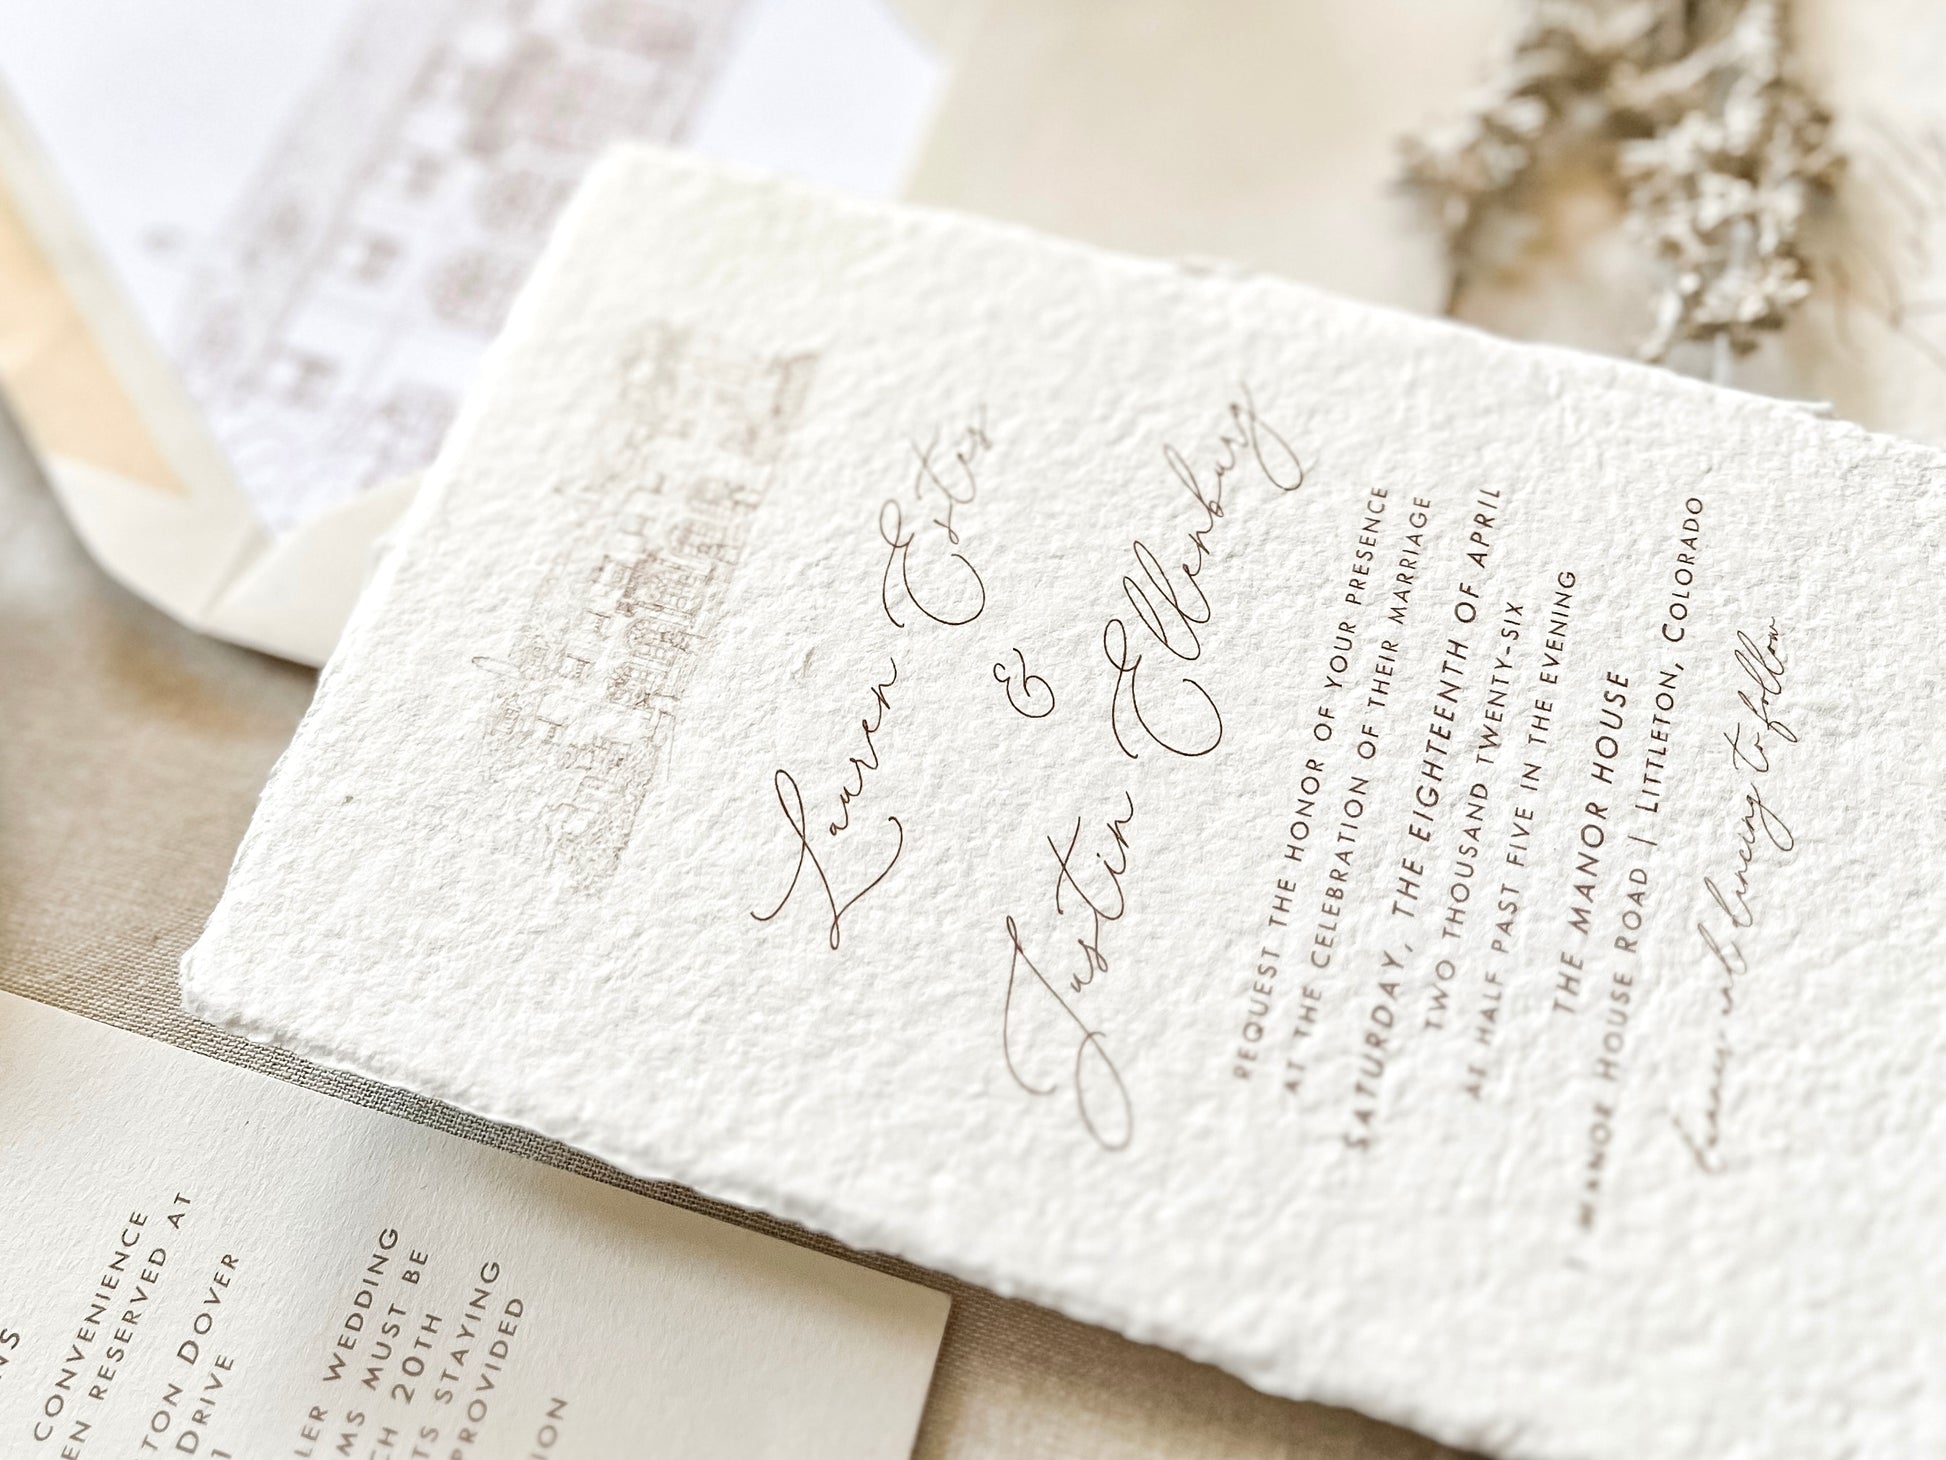 Lauren Estes
&
Justin Ellenburg
REQUEST THE HONOR OF YOUR PRESENCE
AT THE CELEBRATION OF THEIR MARRIAGE
SATURDAY, THE EIGHTEENTH OF APRIL
TWO THOUSAND TWENTY-SIX
AT HALF PAST FIVE IN THE EVENING
THE MANOR HOUSE
1 MANOR HOUSE ROAD | LITTLETON, COLORADO
dinner and dancing to follow
NS
CONVENIENCE
EN RESERVED AT
TON DOVER
DRIVE
1
LER WEDDING
MS MUST BE
CH 20TH
TS STAYING
PROVIDED
ION